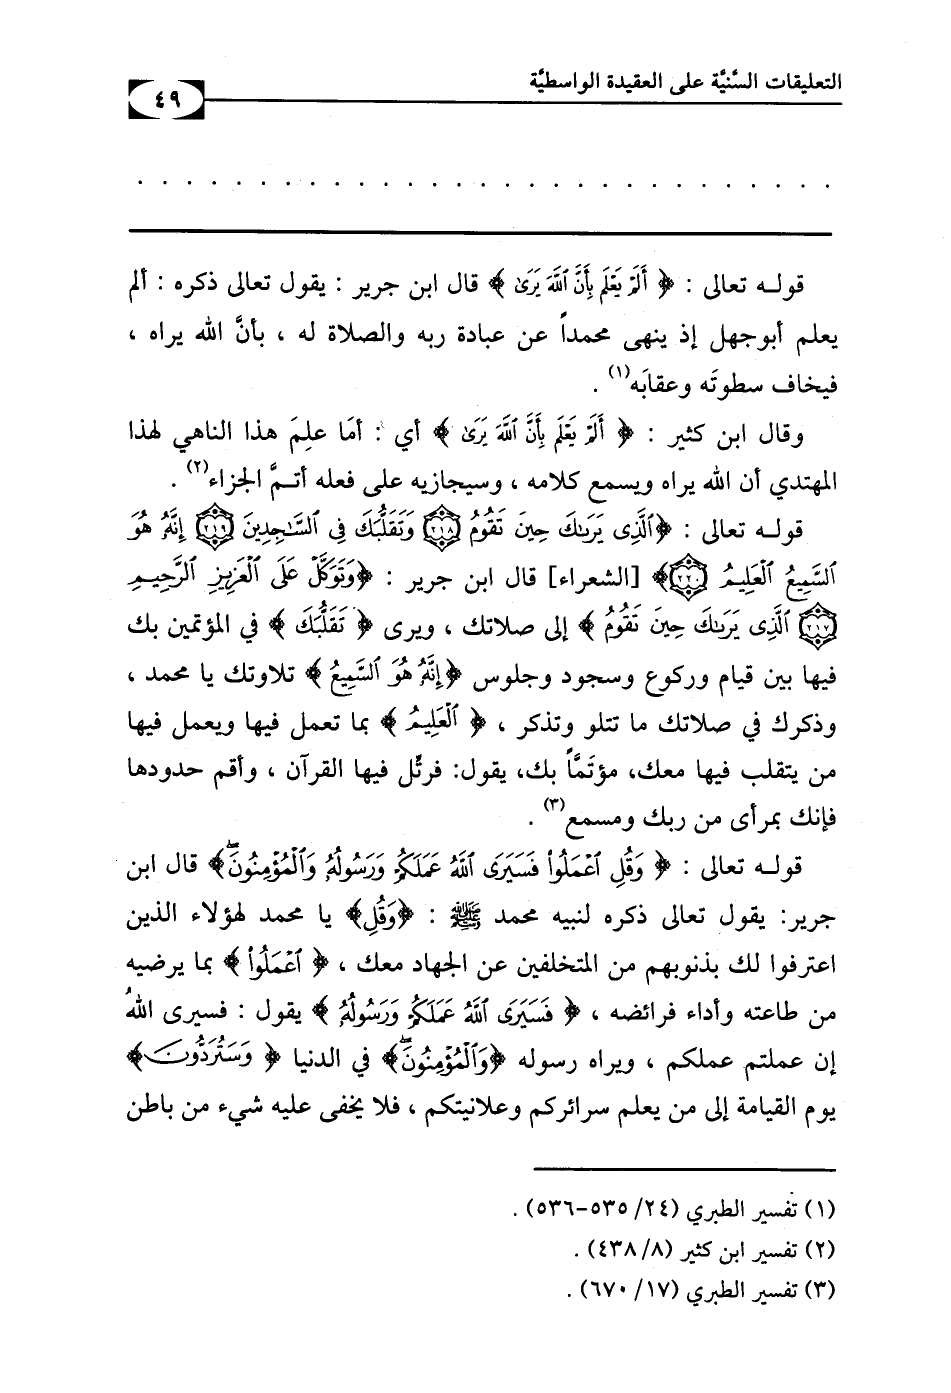 التعليقات السُّنيَّة على العقيدة الواسطيَّة
٤٩
. . . . . . . . . . . . . . . . . . . . . . . . . . . . .
قولـه تعالى : ﴿ أَلَمْ يَعْلَم بِأَنَّ ٱللَّهَ يَرَىٰ ﴾ قال ابن جرير : يقول تعالى ذكره : ألم
يعلم أبوجهل إذ ينهى محمداً عن عبادة ربه والصلاة له ، بأنَّ الله يراه ،
فيخاف سطوتَه وعقابَه(١) .
وقال ابن كثير : ﴿ أَلَمْ يَعْلَم بِأَنَّ ٱللَّهَ يَرَىٰ ﴾ أي : أمَا علِمَ هذا الناهي لهذا
المهتدي أن الله يراه ويسمع كلامه ، وسيجازيه على فعله أتـمَّ الجزاء(٢) .
قولـه تعالى : ﴿ٱلَّذِى يَرَىٰكَ حِينَ تَقُومُ ٢١٨ وَتَقَلُّبَكَ فِى ٱلسَّٰجِدِينَ ٢١٩ إِنَّهُۥ هُوَ
ٱلسَّمِيعُ ٱلْعَلِيمُ ٢٢٠﴾ [الشعراء] قال ابن جرير : ﴿وَتَوَكَّلْ عَلَى ٱلْعَزِيزِ ٱلرَّحِيمِ
٢١٧ ٱلَّذِى يَرَىٰكَ حِينَ تَقُومُ ﴾ إلى صلاتك ، ويرى ﴿ تَقَلُّبَكَ ﴾ في المؤتمين بك
فيها بين قيام وركوع وسجود وجلوس ﴿إِنَّهُۥ هُوَ ٱلسَّمِيعُ ﴾ تلاوتك يا محمد ،
وذكرك في صلاتك ما تتلو وتذكر ، ﴿ ٱلْعَلِيمُ ﴾ بما تعمل فيها ويعمل فيها
من يتقلب فيها معك، مؤتَمَّاً بك، يقول: فرتِّل فيها القرآن ، وأقم حدودها
فإنك بمرأى من ربك ومسمع(٣) .
قولـه تعالى : ﴿ وَقُلِ ٱعْمَلُوا۟ فَسَيَرَى ٱللَّهُ عَمَلَكُمْ وَرَسُولُهُۥ وَٱلْمُؤْمِنُونَ ۖ﴾ قال ابن
جرير: يقول تعالى ذكره لنبيه محمد ﷺ : ﴿وَقُلِ﴾ يا محمد لهؤلاء الذين
اعترفوا لك بذنوبهم من المتخلفين عن الجهاد معك ، ﴿ ٱعْمَلُوا۟ ﴾ بما يرضيه
من طاعته وأداء فرائضه ، ﴿ فَسَيَرَى ٱللَّهُ عَمَلَكُمْ وَرَسُولُهُۥ ﴾ يقول : فسيرى اللهُ
إن عملتم عملكم ، ويراه رسوله ﴿وَٱلْمُؤْمِنُونَ ۖ﴾ في الدنيا ﴿ وَسَتُرَدُّونَ﴾
يوم القيامة إلى من يعلم سرائركم وعلانيتكم ، فلا يخفى عليه شيء من باطن
(١) تفسير الطبري (٢٤/ ٥٣٥-٥٣٦) .
(٢) تفسير ابن كثير (٨/ ٤٣٨) .
(٣) تفسير الطبري (١٧/ ٦٧٠) .